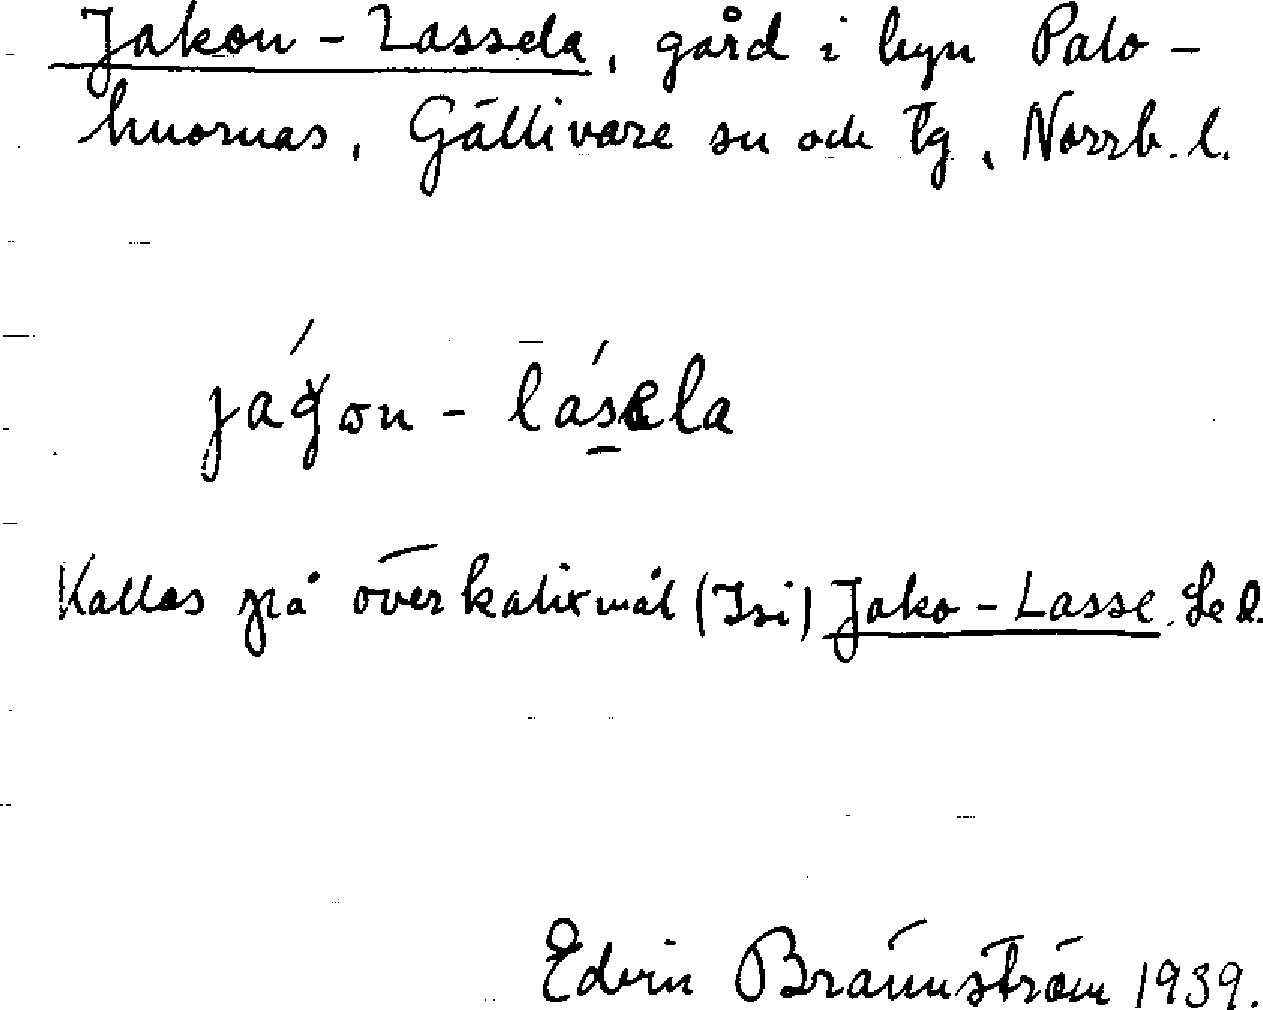 Jakon-Lassela, gård i byn Palo-
huornas, Gällivare sn och tg, Norrb. l.
jágon-lásela
Kallas på överkalixmål (Isi) Jako-Lasse. Se d.
Edvin Brännström 1939.